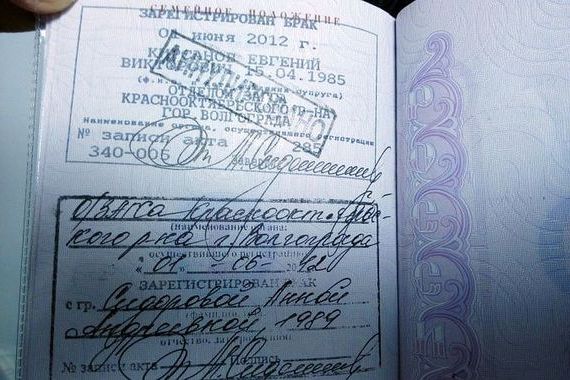 СЕМЕЙНОЕ ПОЛОЖЕНИЕ
ЗАРЕГИСТРИРОВАН БРАК
июня 2012 г.
ЕВГЕНИЙ
15.04.1985
супруга)
КРАСНООКТЯБРЬСКОГО Р-НА
ГОР. ВОЛГОГРАДА
Наименование органа, осуществившего регистрацию
№ записи акта 285
340-006
ОЗАГСа Краснооктябрь-
(наименование органа,
кого р-на г. Волгограда
осуществившего регистрацию)
"01" 06
ЗАРЕГИСТРИРОВАН БРАК
с гр. Сидоровой Анной
Андреевной, 1989
отчество, дата рождения)
№ записи акта Подпись